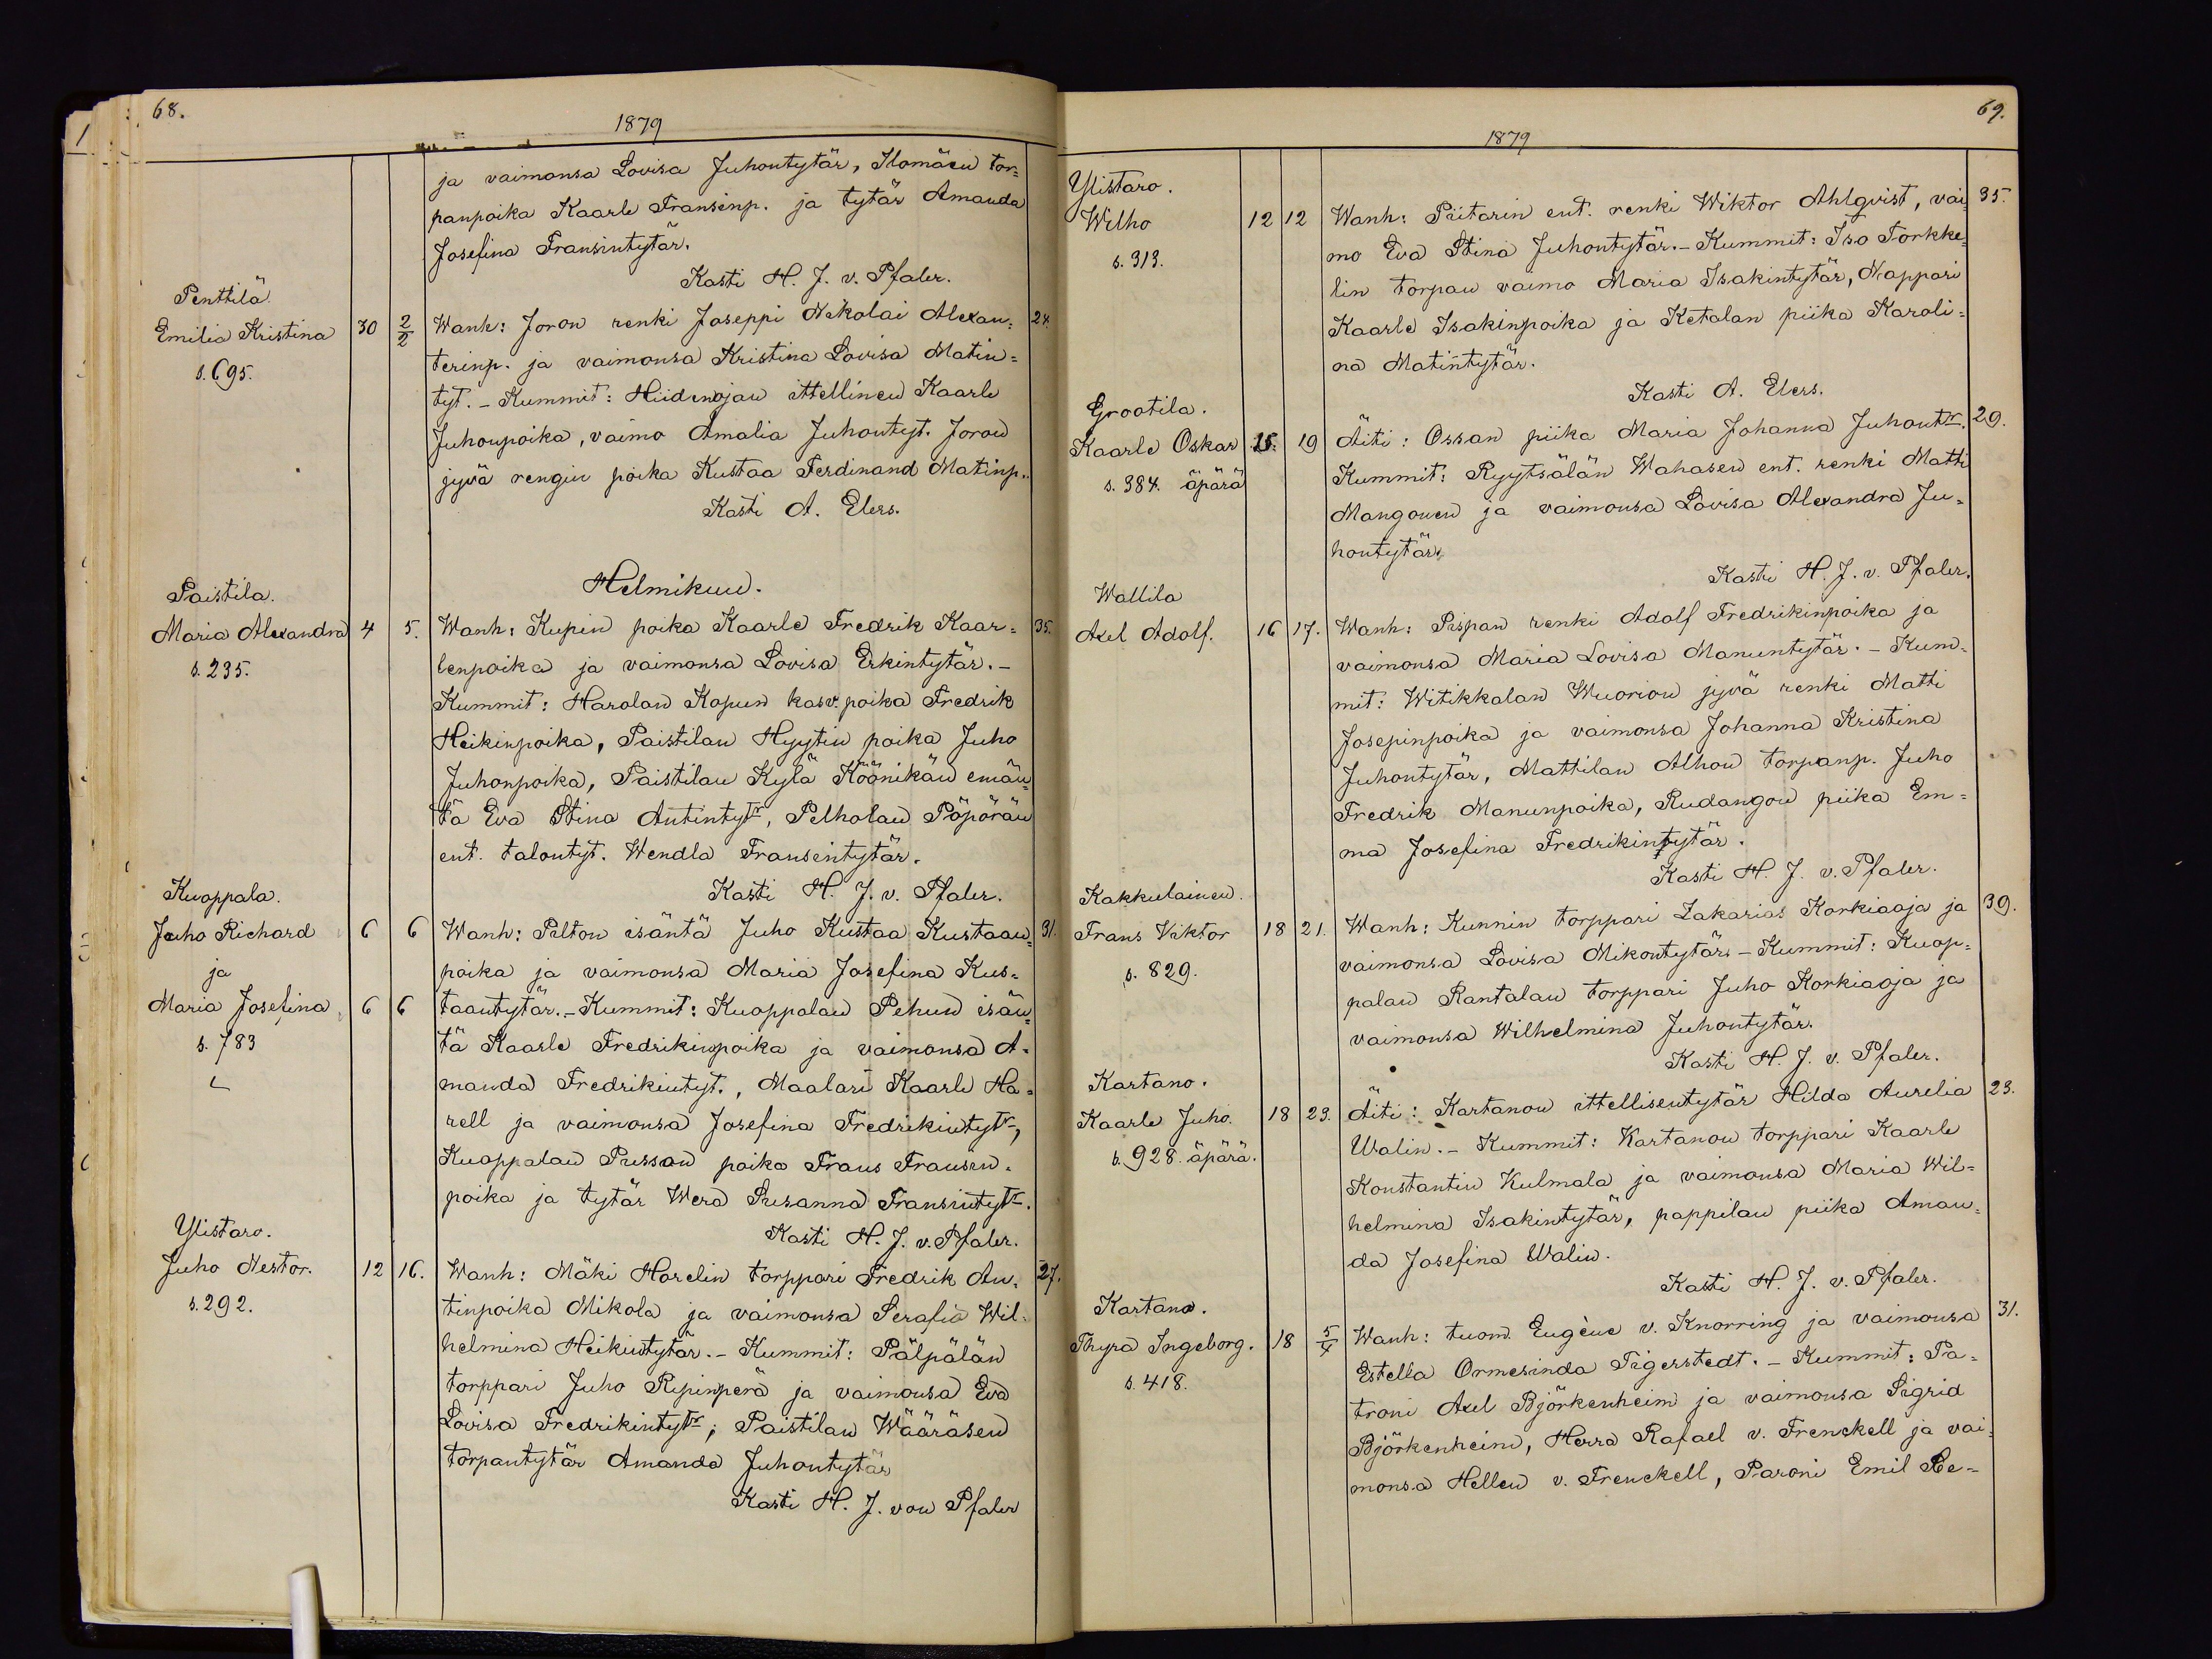 68.
1879
ja vaimonsa Lovisa Juhontytär, Ilomäen tor=
panpoika Kaarle Fransinp. ja tytär Amanda
Josefina Fransintytär.
Kasti H. J. v. Pfaler.
Penttilä.
Emilia Kristina 30 2/2 Wanh: Joron renki Joseppi Nikolai Alexan= 24.
s. 695. terinp. ja vaimonsa Kristina Lovisa Matin=
tyt. - Kummit: Hiidenojan ittellinen Kaarle
Juhonpoika, vaimo Amalia Juhontyt. Joron
jyvä rengin poika Kustaa Ferdinand Matinp.
Kasti A. Elers.
Helmikuu.
Paistila.
Maria Alexandra 4 5. Wanh: Kupin poika Kaarle Fredrik Kaar= 35.
s. 235. lenpoika ja vaimonsa Lovisa Erkintytär. -
Kummit: Harolan Kopun kasv. poika Fredrik
Heikinpoika, Paistilan Hyytin poika Juho
Juhonpoika, Paistilan Kylä Köönikän emän=
tä Eva Stina Antintytr, Pelholan Pöpörän
ent. talontyt. Wendla Fransintytär.
Kasti H. J. v. Pfaler.
Kuoppala.
Juho Richard 6 6 Wanh: Pilton isäntä Juho Kustaa Kustaan= 31.
ja poika ja vaimonsa Maria Josefina Kus=
Maria Josefina 6 6 taantytär. - Kummit: Kuoppalan Pehun isän=
s. 783 tä Kaarle Fredrikinpoika ja vaimonsa A=
manda Fredrikintyt., Maalari Kaarle Ha=
rell ja vaimonsa Josefina Fredrikintytr,
Kuoppalan Pussan poika Frans Fransin=
poika ja tytär Wera Susanna Fransintytr.
Kasti H. J. v. Pfaler.
Ylistaro.
Juho Nestor. 12 16. Wanh: Mäki Horelin torppari Fredrik An= 27.
s. 292. tinpoika Mikola ja vaimonsa Serafia Wil=
helmina Heikintytär. - Kummit: Pälpälän
torppari Juho Ripinperä ja vaimonsa Eva
Lovisa Fredrikintytr; Paistilan Wääräsen
torpantytär Amanda Juhontytär
Kasti H. J. von Pfaler
69.
1879
Ylistaro.
Wilho 12 12 Wanh: Piitarin ent. renki Wiktor Ahlqvist, vai= 35.
s. 313. mo Eva Stina Juhontytär. - Kummit: Iso Torkke=
lin torpan vaimo Maria Isakintytär, Nappari
Kaarle Isakinpoika ja Ketalan piika Karoli=
na Matintytär.
Kasti A. Elers.
Grootila.
Kaarle Oskar 15. 19 Äiti: Ossan piika Maria Johanna Juhontr. 29.
s. 384. äpärä Kummit: Ryytsälän Wahasen ent. renki Matti
Mangonen ja vaimonsa Lovisa Alexandra Ju=
hontytär.
Kasti H. J. v. Pfaler.
Wallila
Axel Adolf. 16 17. Wanh: Pispan renki Adolf Fredrikinpoika ja
vaimonsa Maria Lovisa Manuntytär. - Kum=
mit: Witikkalan Wuorion jyvä renki Matti
Josepinpoika ja vaimonsa Johanna Kristina
Juhontytär, Mattilan Alhon torpanp. Juho
Fredrik Manunpoika, Rudangon piika Em=
ma Josefina Fredrikintytär.
Kasti H. J. v. Pfaler.
Kakkulainen.
Frans Viktor 18 21. Wanh: Kunnin torppari Zakarias Korkiaoja ja 39.
s. 829. vaimonsa Lovisa Mikontytär. - Kummit: Kuop=
palan Rantalan torppari Juho Korkiaoja ja
vaimonsa Wilhelmina Juhontytär.
Kasti H. J. v. Pfaler.
Kartano.
Kaarle Juho. 18 23. Äiti: Kartanon ittellisentytär Hilda Aurelia 23.
s. 928. äpärä. Walin. - Kummit: Kartanon torppari Kaarle
Konstantin Kulmala ja vaimonsa Maria Wil=
helmina Isakintytär, pappilan piika Aman=
da Josefina Walin.
Kasti H. J. v. Pfaler.
Kartano.
Thyra Ingeborg. 18 5/4 Wanh: tuom. Eugène v. Knorring ja vaimonsa 31.
s. 418. Estella Ormesinda Tigerstedt. - Kummit: Pa=
troni Axel Björkenheim ja vaimonsa Sigrid
Björkenheim, Herra Rafael v. Frenckell ja vai=
monsa Hellen v. Frenckell, Paroni Emil Ce=